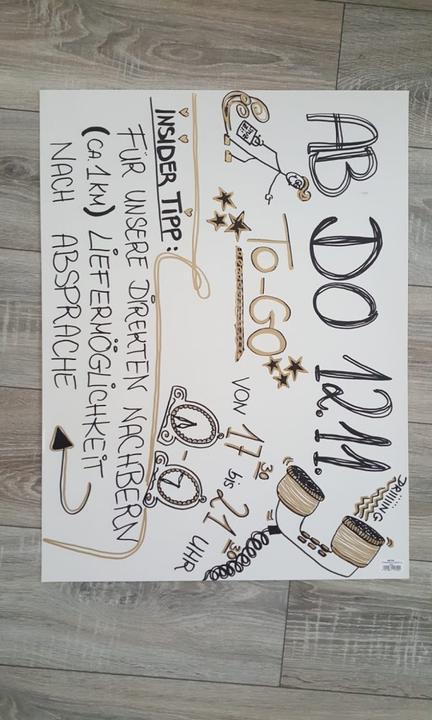 AB DO 12.11.
DRIIIING...
TO-GO
VON 17³⁰ bis 21³⁰ UHR
INSIDER TIPP:
FÜR UNSERE DIREKTEN NACHBERN
(CA. 1KM) LIEFERMÖGLICHKEIT
NACH ABSPRACHE